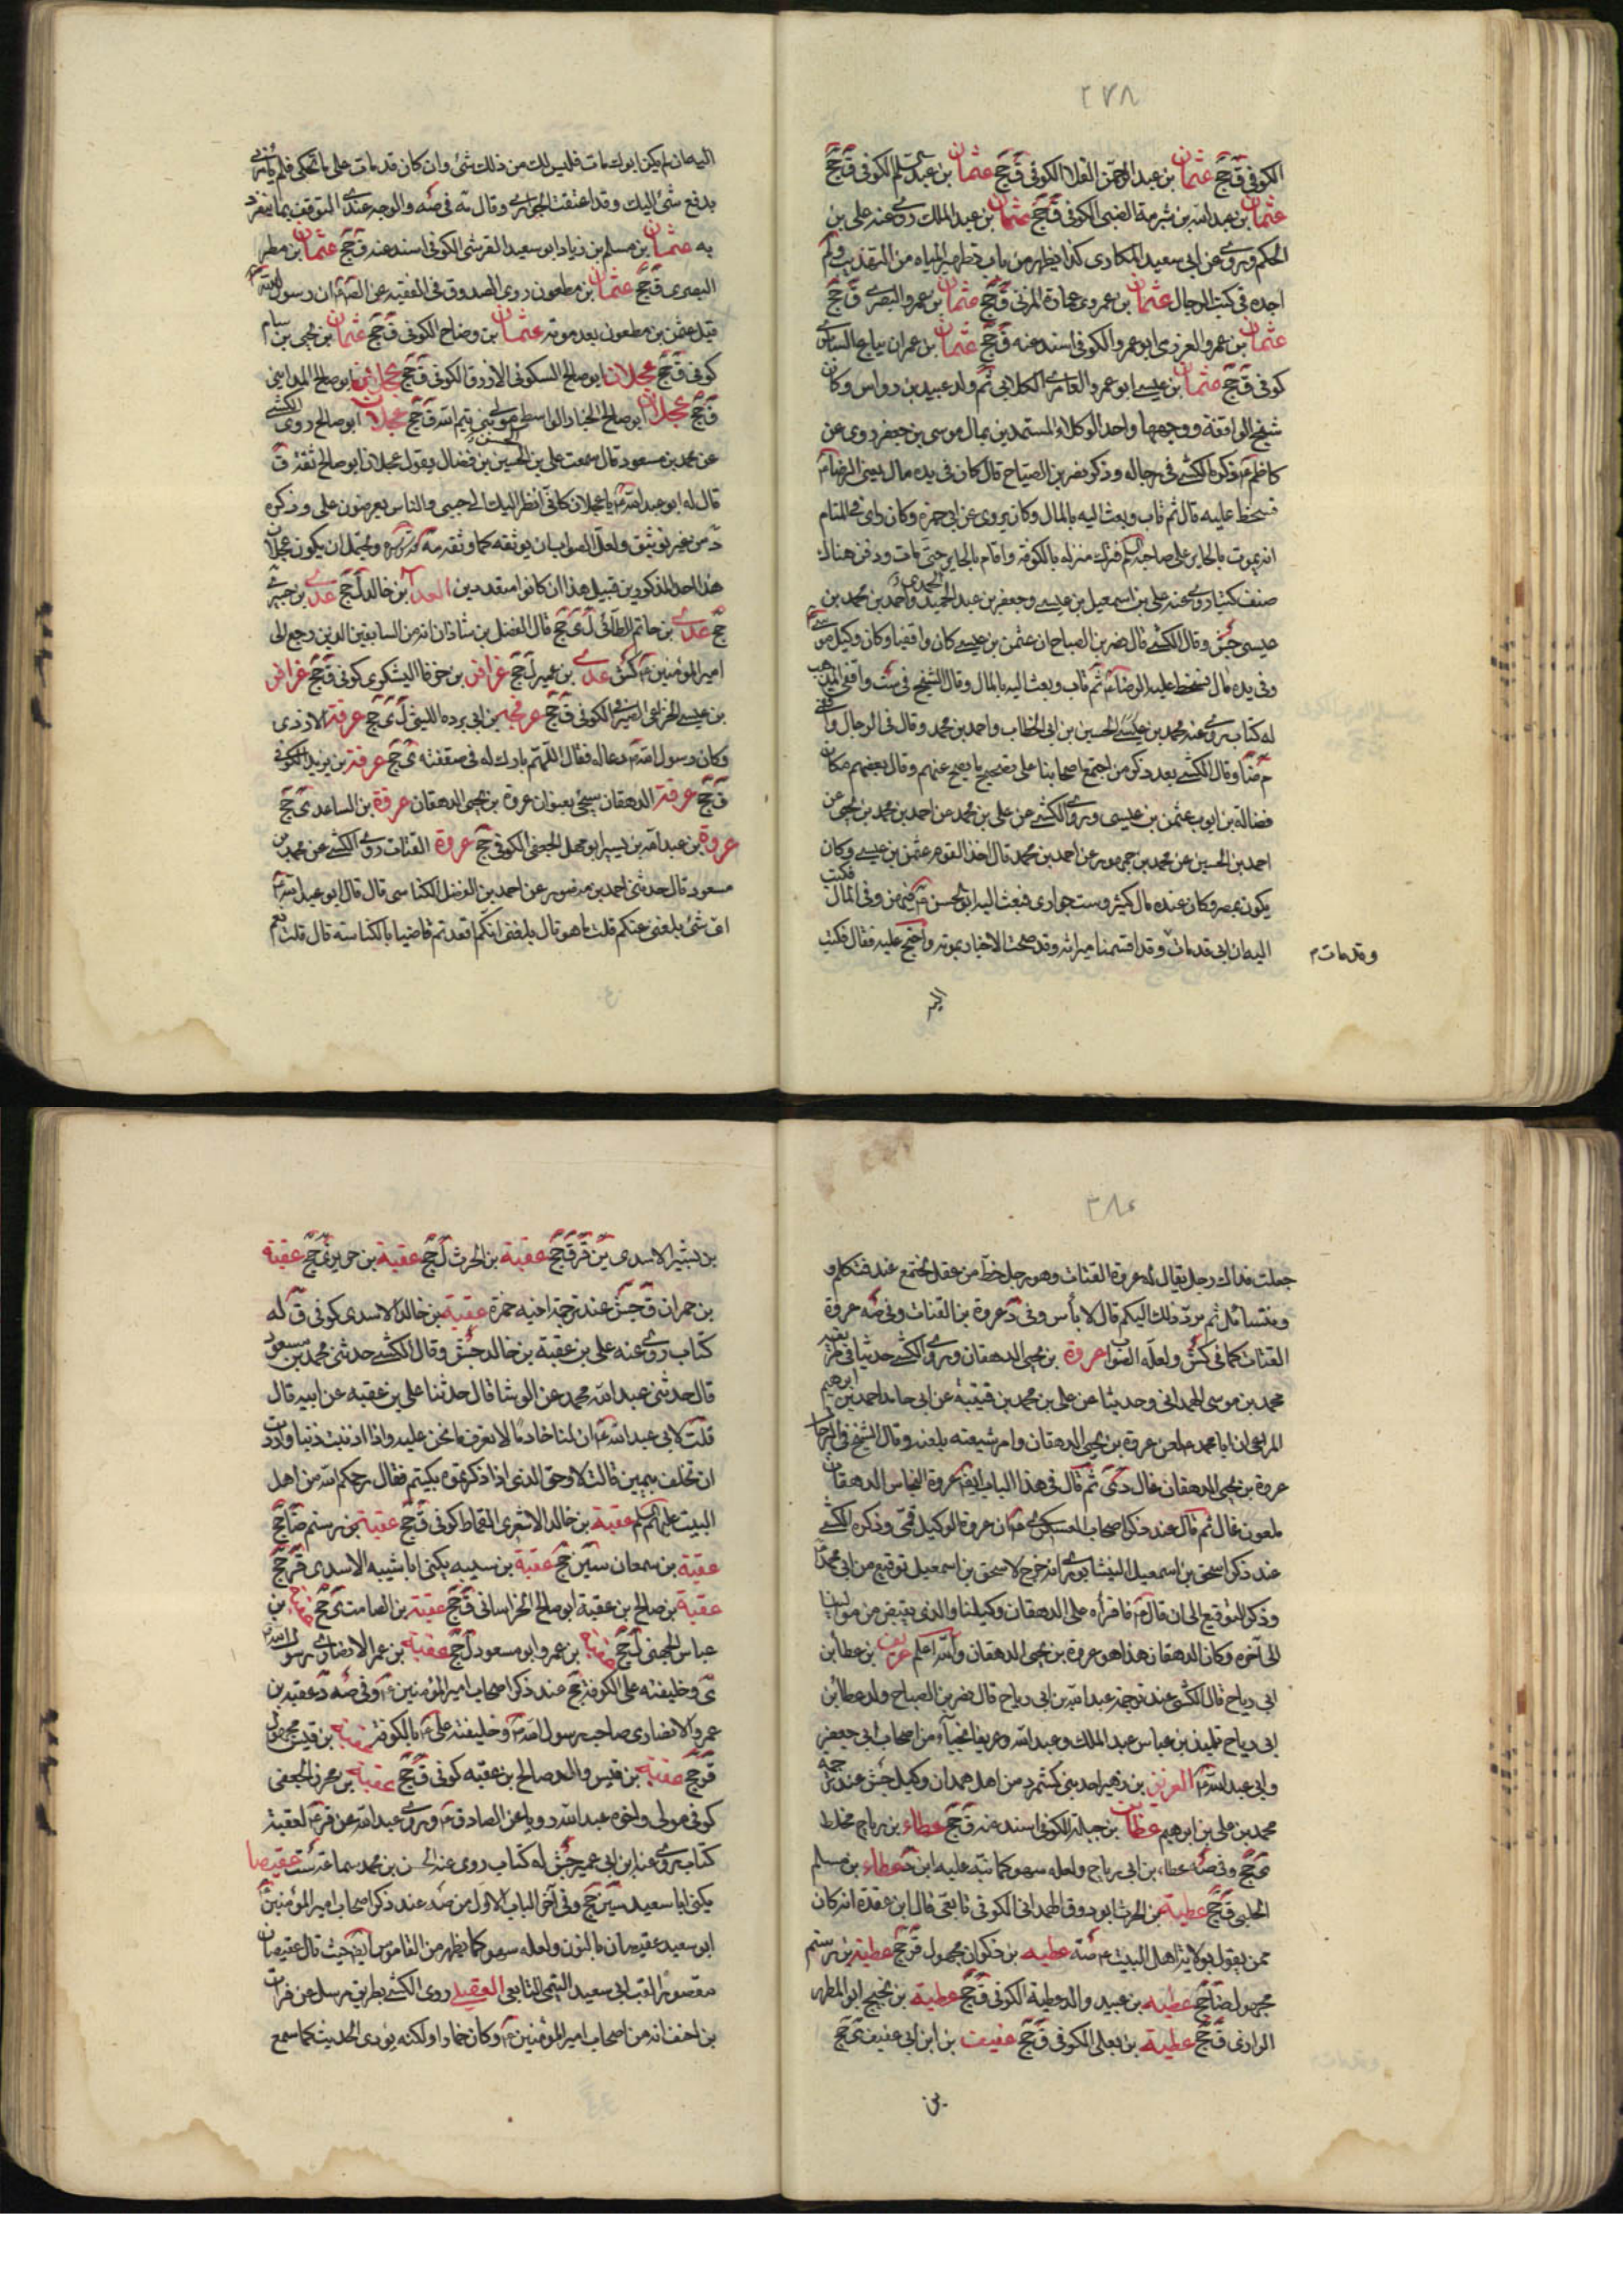 ٢٧٨
الكوفي ق جج عثمان بن عبد الرحمن الكوفي ق جج عثمان بن عبد الكوفي ق جج
عثمان بن عبد الله بن شبرمة الضبى الكوفي ق جج عثمان بن عبد الملك روى عنه على بن
الحكم ويروى عن ابى سعيد المكارى كذا يظهر من باب تطهير المياه من التهذيب ولم
اجده في كتب الرجال عثمان بن عمرو بن عمارة المزنى ق جج عثمان بن عمرو البصرى ق جج
عثمان بن عمرو العرزمى ابو عمرو الكوفي اسند عنه ق جج عثمان بن عمران بياع السابرى
كوفى ق جج عثمان بن عيسى ابو عمرو العامرى الكلابى ثم ولد عبيد بن رواس وكان
شيخ الواقفة ووجهها واحد الوكلاء المستبدين بمال موسى بن جعفر روى عن
كاظم ذكره الكشى فى رجاله وذكر نصر بن الصباح قال كان فى يده مال يعنى الرضا
فسخط عليه قال ثم تاب وبعث اليه بالمال وكان يروى عن ابى حمزة وكان راى فى المنام
انه يموت بالحاير على صاحبه فترك منزله بالكوفة واقام بالحاير حتى مات ودفن هناك
صنف كتبا روى عنه على بن اسمعيل بن عيسى وجعفر بن عبد الحميد المحمدى واحمد بن محمد بن
عيسى جش وقال الكشى قال نصر بن الصباح ان عثمن بن عيسى كان واقفيا وكان وكيل موسى
وفى يده مال فسخط عليه الرضا ثم تاب وبعث اليه بالمال وقال الشيخ فى ست واقفى المذهب
له كتاب يروى عنه محمد بن عيسى الحسين بن ابى الخطاب واحمد بن محمد وقال فى الرجال واقفى
م ضا وقال الكشى بعد ذكر من اجتمع اصحابنا على تصحيح ما يصح عنهم وقال بعضهم مكان
فضالة بن ايوب عثمن بن عيسى وروى الكشى عن على بن محمد عن احمد بن محمد بن يحيى عن
احمد بن الحسين عن محمد بن جمهور عن احمد بن محمد قال احد القوم عثمن بن عيسى وكان
يكون بمصر وكان عنده مال كثير وست جوارى فبعث اليه ابو الحسن فيهن وفى المال فكتب
اليه ان ابى قد مات وقد اقتسمنا ميراثه وقد صحت الاخبار بموته واحتج عليه فقال فكتب
وقد مات م
اليه
اليه ان لم يكن ابوك مات فليس لك من ذلك شئ وان كان قد مات على ما تحكى فلم يأمرنى
بدفع شئ اليك وقد اعتقت الجوارى وقال ته فى صه والوجه عندى التوقف بما ينفرد
به عثمان بن مسلم بن زياد ابو سعيد القرشى الكوفى اسند عنه ق جج عثمان بن مطر
البصرى ق جج عثمان بن مظعون روى الصدوق فى الفقيه عن ان رسول الله
قبل عثمن بن مظعون بعد موته عثمان بن وضاح الكوفى ق جج عثمان بن يحيى بن سام
كوفى ق جج عجلان ابو صالح السكونى الازرق الكوفى ق جج عجلان ابو صالح المداينى
ق جج عجلان ابو صالح الخباز الواسطى مولى بنى تيم الله ق جج عجلان ابو صالح روى الكشى
عن محمد بن مسعود قال سمعت على بن الحسين بن فضال يقول عجلان ابو صالح ثقة ق
قال له ابو عبد الله يا عجلان كانى انظر اليك الى جنبى والناس يعرضون على وذكره
د من غير توثيق ولعل الصواب ان يوثقه كما وثقه ويحتمل ان يكون عجلان
هذا احد المذكورين قبيل هذا ان كانوا متعددين العدا بن خالد ل جج عدى بن
جج عدى بن حاتم الطائى ل ى جج قال الفضل بن شاذان انه من السابقين الذين رجع الى
امير المؤمنين كش عدى بن عميرة ل جج غرافن بن حوفا اليشكرى كوفى ق جج غرافن
بن عيسى الخزاعى الكوفى ق جج عرفجة بن ابى برده الليثى ل ى جج عرفة الازدى
وكان رسول الله دعا له فقال اللهم بارك له فى صفقته ى جج عرفة بن يزيد الكوفى
ق جج عرفة الدهقان سيجئ بعنوان عروة بن يحيى الدهقان عروة بن الساعدى جج
عروة بن عبد الله بن بشير ابو مهل الجعفى الكوفى جج عروة القتات روى الكشى عن محمد بن
مسعود قال حدثنى احمد بن منصور عن احمد بن الفضل الكناسى قال قال ابو عبد الله
اى شئ بلغنى عنكم قلت ما هو قال بلغنى انكم اقعدتم قاضيا بالكناسة قال قلت نعم
٢٨٠
جعلت فداك رجل يقال له عروة القتات وهو رجل له حظ من عقل يجتمع عنده فنتكلم
ونتسائل ثم نرد ذلك اليكم قال لا بأس وفى د عروة بن القتات وفى صه عروة
القتات كما فى كش ولعله الصواب عروة بن يحيى الدهقان وروى الكشى حديثا فى
محمد بن موسى الهمدانى وحديثا عن على بن محمد بن قتيبة عن ابى حامد احمد بن ابرهيم
المراغى ان ابا محمد لعن عروة بن يحيى الدهقان وامر شيعته بلعنه وقال الشيخ فى الرجال
عروة بن يحيى الدهقان غال دى ثم قال فى هذا الباب ايضا عروة النخاس الدهقان
ملعون غال ثم قال عند ذكر اصحاب العسكرى ان عروة الوكيل قمى وذكره الكشى
عند ذكر اسحق بن اسمعيل النيشابورى انه خرج لاسحق بن اسمعيل توقيع من ابى محمد
وذكر التوقيع الى ان قال فاقرأه على الدهقان وكيلنا والذى يقبض من موالينا
الى آخره وكان الدهقان هذا هو عروة بن يحيى الدهقان والله اعلم عريف بن عطا بن
ابى رياح قال الكشى عند ترجمة عبد الله بن ابى رياح قال نصر بن الصباح ولد عطا بن
ابى رياح تلميذ بن عباس عبد الملك وعبد الله وعريفا نجباء من اصحاب ابى جعفر
وابى عبد الله العزيز بن زهير احد بنى كشمرد من اهل همدان وكيل جش عند ترجمة
محمد بن على بن ابرهيم عطا بن جبلة الكوفى اسند عنه ق جج عطاء بن رباح مخلط
ى جج وفى صه عطاء بن ابى رباح ولعله سهو كما نبه عليه ابن د عطاء بن مسلم
الحلبى ق جج عطية بن الحرث ابو روق الهمدانى الكوفى تابعى قال ابن عقدة انه كان
ممن يقول بولاية اهل البيت صه عطيه بن ذكوان مجهول قر جج عطيه بن رستم
مجهول ضا جج عطيه بن عبيد والد عطية الكوفى ق جج عطية بن نجيح ابو المطهر
الرازى ق جج عطية بن يعلى الكوفى ق جج عفيف بن ابى عفيف ى جج
بن
بن بشير الاسدى ين قر ق جج عقبة بن الحرث ل جج عقبة بن حويز ى جج عقبة
بن حمران ق جش عند ترجمة اخيه حمزة عقبة بن خالد الاسدى كوفى ق له
كتاب روى عنه على بن عقبة بن خالد جش وقال الكشى حدثنى محمد بن مسعود
قال حدثنى عبد الله بن محمد عن الوشا قال حدثنا على بن عقبه عن ابيه قال
قلت لابى عبد الله ان لنا خادما لا تعرف ما نحن عليه واذا اذنبت ذنبا وارادت
ان تحلف بيمين قالت لا وحق الذى اذا ذكرتموه بكيتم فقال رحمكم الله من اهل
البيت عقبة بن خالد الاشعرى القماط كوفى ق جج عقبة بن رستم ضا جج
عقبة بن سمعان سين جج عقبة بن شيبه يكنى ابا شيبه الاسدى قر جج
عقبة بن صالح بن عقبة ابو صالح الخراسانى ق جج عقبة بن الصامت ى جج عقبة بن
عباس الجهنى ل جج عقبة بن عمرو ابو مسعود ل جج عقبة بن عمر الانصارى رسول الله
ى وخليفته على الكوفة جج عند ذكر اصحاب امير المؤمنين وفى صه د عقبه بن
عمرو الانصارى صاحب رسول الله وخليفته على بالكوفة عقبة بن قيس مجهول
قر جج عقبة بن قيس والد صالح بن عقبه كوفى ق جج عقبة بن محرز الجعفى
كوفى مولى واخوه عبد الله رويا عن الصادق وروى عبد الله عن قر لعقبة
كتاب يروى عنه ابن ابى عمير جش له كتاب روى عنه الحسن بن محمد سماعة ست عقيصا
يكنى ابا سعيد سين جج وفى آخر الباب الاول من صه عند ذكر اصحاب امير المؤمنين
ابو سعيد عقيصان بالنون ولعله سهو كما يظهر من القاموس ايضا حيث قال عقيصان
مقصورا لقب ابى سعيد التيمى التابعى العقيلى روى الكشى بطريق مرسل عن فرات
بن احنف انه من اصحاب امير المؤمنين وكان خمارا ولكنه يؤدى الحديث كما سمع